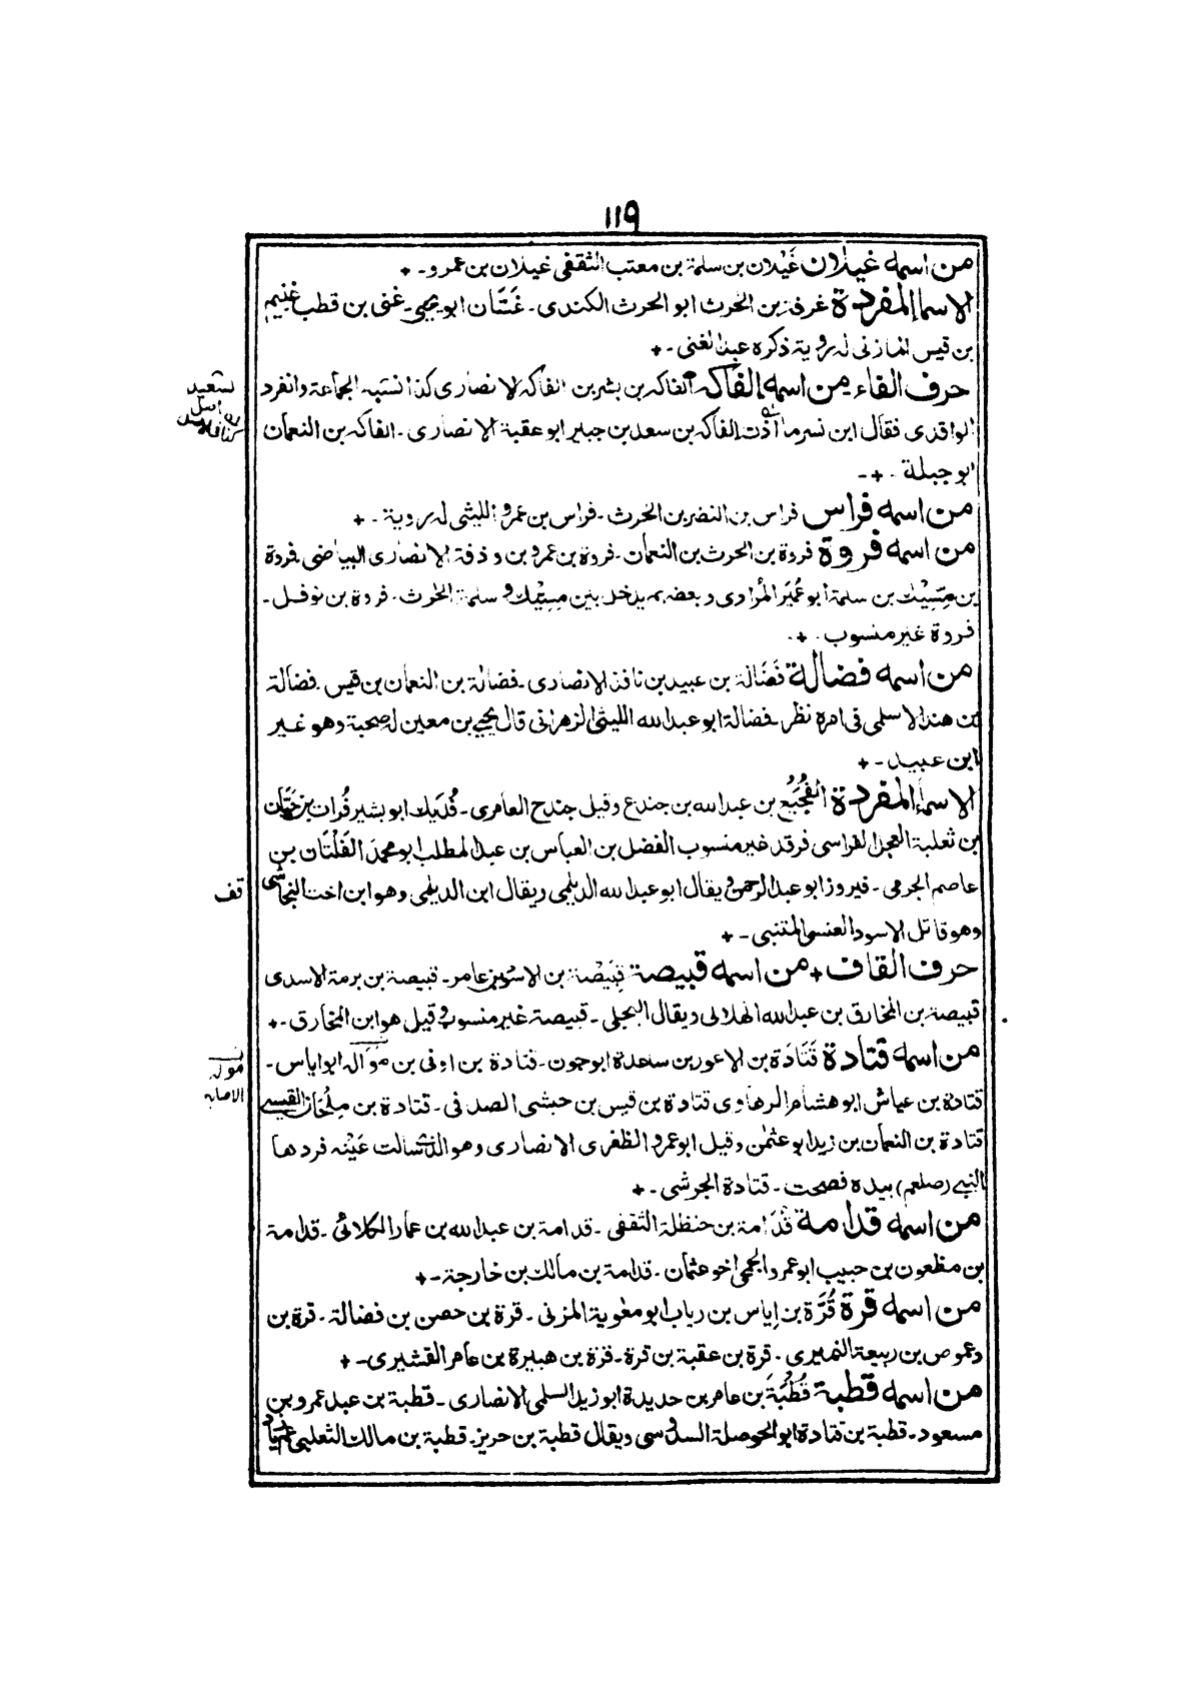 ١١٩
من اسمه غيلان غَيْلان بن سلمة بن معتب الثقفى غيلان بن عمرو ـ +
الاسماء المفردة غرفة بن الحرث ابو الحرث الكندى ـ غَسَّان ابو يحيى ـ غنى بن قطب غنيم
بن قيس المازنى له روية ذكره عبد الغنى ـ +
حرف الفاء من اسمه الفاكه الفاكه بن بشر بن الفاكه الانصارى كذا نسبه الجماعة وانفرد
الواقدى فقال ابن نسر الفاكه بن سعد بن جبير ابو عقبة الانصارى ـ الفاكه بن النعمان
ابو جبلة ـ + ـ
من اسمه فراس فراس بن النضر بن الحرث ـ فراس بن عمرو الليثى له روية ـ +
من اسمه فروة فروة بن الحرث بن النعمان ـ فروة بن عمرو بن وذفة الانصارى البياضى فروة
بن مسيك بن سلمة ابو عُمَير المرادى وبعضهم يدخل بين مسيك و سلمة الحرث ـ فروة بن نوفل ـ
فروة غير منسوب ـ + ـ
من اسمه فضالة فَضَالة بن عبيد بن نافذ الانصارى ـ فضالة بن النعمان بن قيس ـ فضالة
بن هند الاسلمى فى امره نظر ـ فضالة ابو عبد الله الليثى الزهرانى قال يحيى بن معين له صحبة وهو غير
ابن عبيد ـ +
الاسماء المفردة الفُجَيْع بن عبد الله بن جندع وقيل جندح العامرى ـ فُدَيك ابو بشير فُرات بن حَيَّان
بن ثعلبة العجلى فراسى فرقد غير منسوب الفضل بن العباس بن عبد المطلب ابو محمد الفَلَتَان بن
عاصم الجرمى ـ فيروز ابو عبد الرحمن ويقال ابو عبد الله الديلمى ويقال ابن الديلمى وهو ابن اخت النجاشى
وهو قاتل الاسود العنسى المتنبى ـ +
حرف القاف + من اسمه قبيصة قَبِيْصَة بن الاسود بن عامر ـ قبيصة بن برمة الاسدى
قبيصة بن المخارق بن عبد الله الهلالى ويقال البجلى ـ قبيصة غير منسوب وقيل هو ابن المخارق ـ +
من اسمه قتادة قَتَادَة بن الاعور بن ساعدة ابو جون ـ قتادة بن اوفى بن مَوْاله ابو اياس ـ
قتادة بن عياش ابو هشام الرهاوى قتادة بن قيس بن حبشى الصدفى ـ قتادة بن مِلْحَان القيسى
قتادة بن النعمان بن زيد ابو عثمن وقيل ابو عمرو الظفرى الانصارى وهو الذى سالت عَيْنه فردها
النبى (صلعم) بيده فصحت ـ قتادة الجرشى ـ +
من اسمه قدامة قُدَامة بن حنظلة الثقفى ـ قدامة بن عبد الله بن عمار الكلابى ـ قدامة
بن مظعون بن حبيب ابو عمرو الجمحى اخو عثمان ـ قدامة بن مالك بن خارجة ـ +
من اسمه قرة قُرَّة بن إياس بن رياب ابو معوية المزنى ـ قرة بن حصن بن فضالة ـ قرة بن
دعموص بن ربيعة النميرى ـ قرة بن عقبة بن قرة ـ قرة بن هبيرة بن عامر القشيرى ـ +
من اسمه قطبة قُطْبَة بن عامر بن حديدة ابو زيد السلمى الانصارى ـ قطبة بن عبد عمرو بن
مسعود ـ قطبة بن قتادة ابو الحوصلة السدوسى ويقال قطبة بن حريز ـ قطبة بن مالك الثعلبى
قف
موله
الاصابه